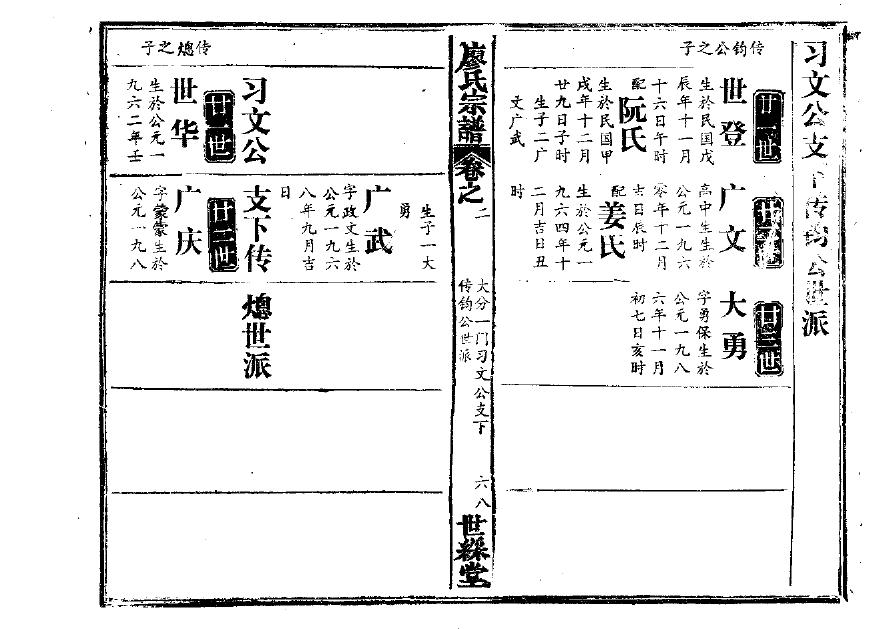 习文公支下传钧公世派
传钧公之子
廿一世
世登
生於民国戊
辰年十一月
十六日午时
配
阮氏
生於民国甲
戌年十二月
廿九日子时
生子二广
文广武
廿二世
广文
高中生生於
公元一九六
零年十二月
吉日辰时
配
姜氏
生於公元一
九六四年十
二月吉日丑
时
廿三世
大勇
字勇保生於
公元一九八
六年十一月
初七日亥时
廖氏宗谱
卷之二
大分一门习文公支下
传钧公世派
六八
世綵堂
生子一大
勇
广武
字政文生於
公元一九六
八年九月吉
日
习文公支下传熜世派
传熜之子
廿一世
世华
生於公元一
九六二年壬
廿二世
广庆
字蒙蒙生於
公元一九八